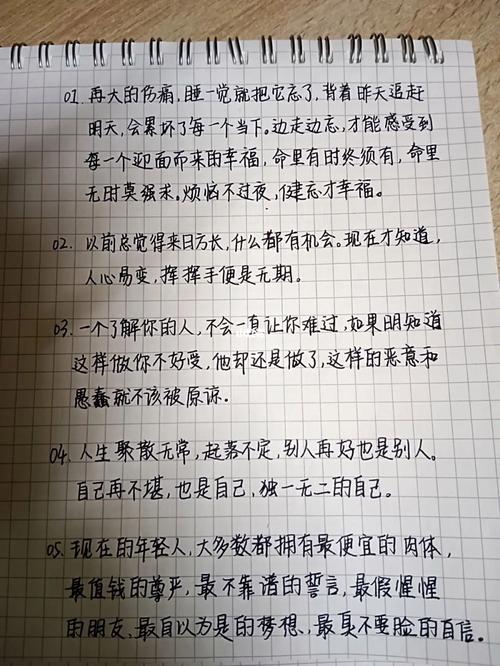 01. 再大的伤痛，睡一觉就把它忘了，背着昨天追赶
明天，会累坏了每一个当下。边走边忘，才能感受到
每一个迎面而来的幸福，命里有时终须有，命里
无时莫强求。烦恼不过夜，健忘才幸福。
02. 以前总觉得来日方长，什么都有机会。现在才知道，
人心易变，挥挥手便是无期。
03. 一个了解你的人，不会一直让你难过，如果明知道
这样做你不好受，他却还是做了，这样的恶意和
愚蠢就不该被原谅.
04. 人生聚散无常，起落不定，别人再好也是别人。
自己再不堪，也是自己，独一无二的自己。
05. 现在的年轻人，大多数都拥有最便宜的肉体，
最值钱的尊严，最不靠谱的誓言，最假惺惺
的朋友、最自以为是的梦想、最臭不要脸的自信。